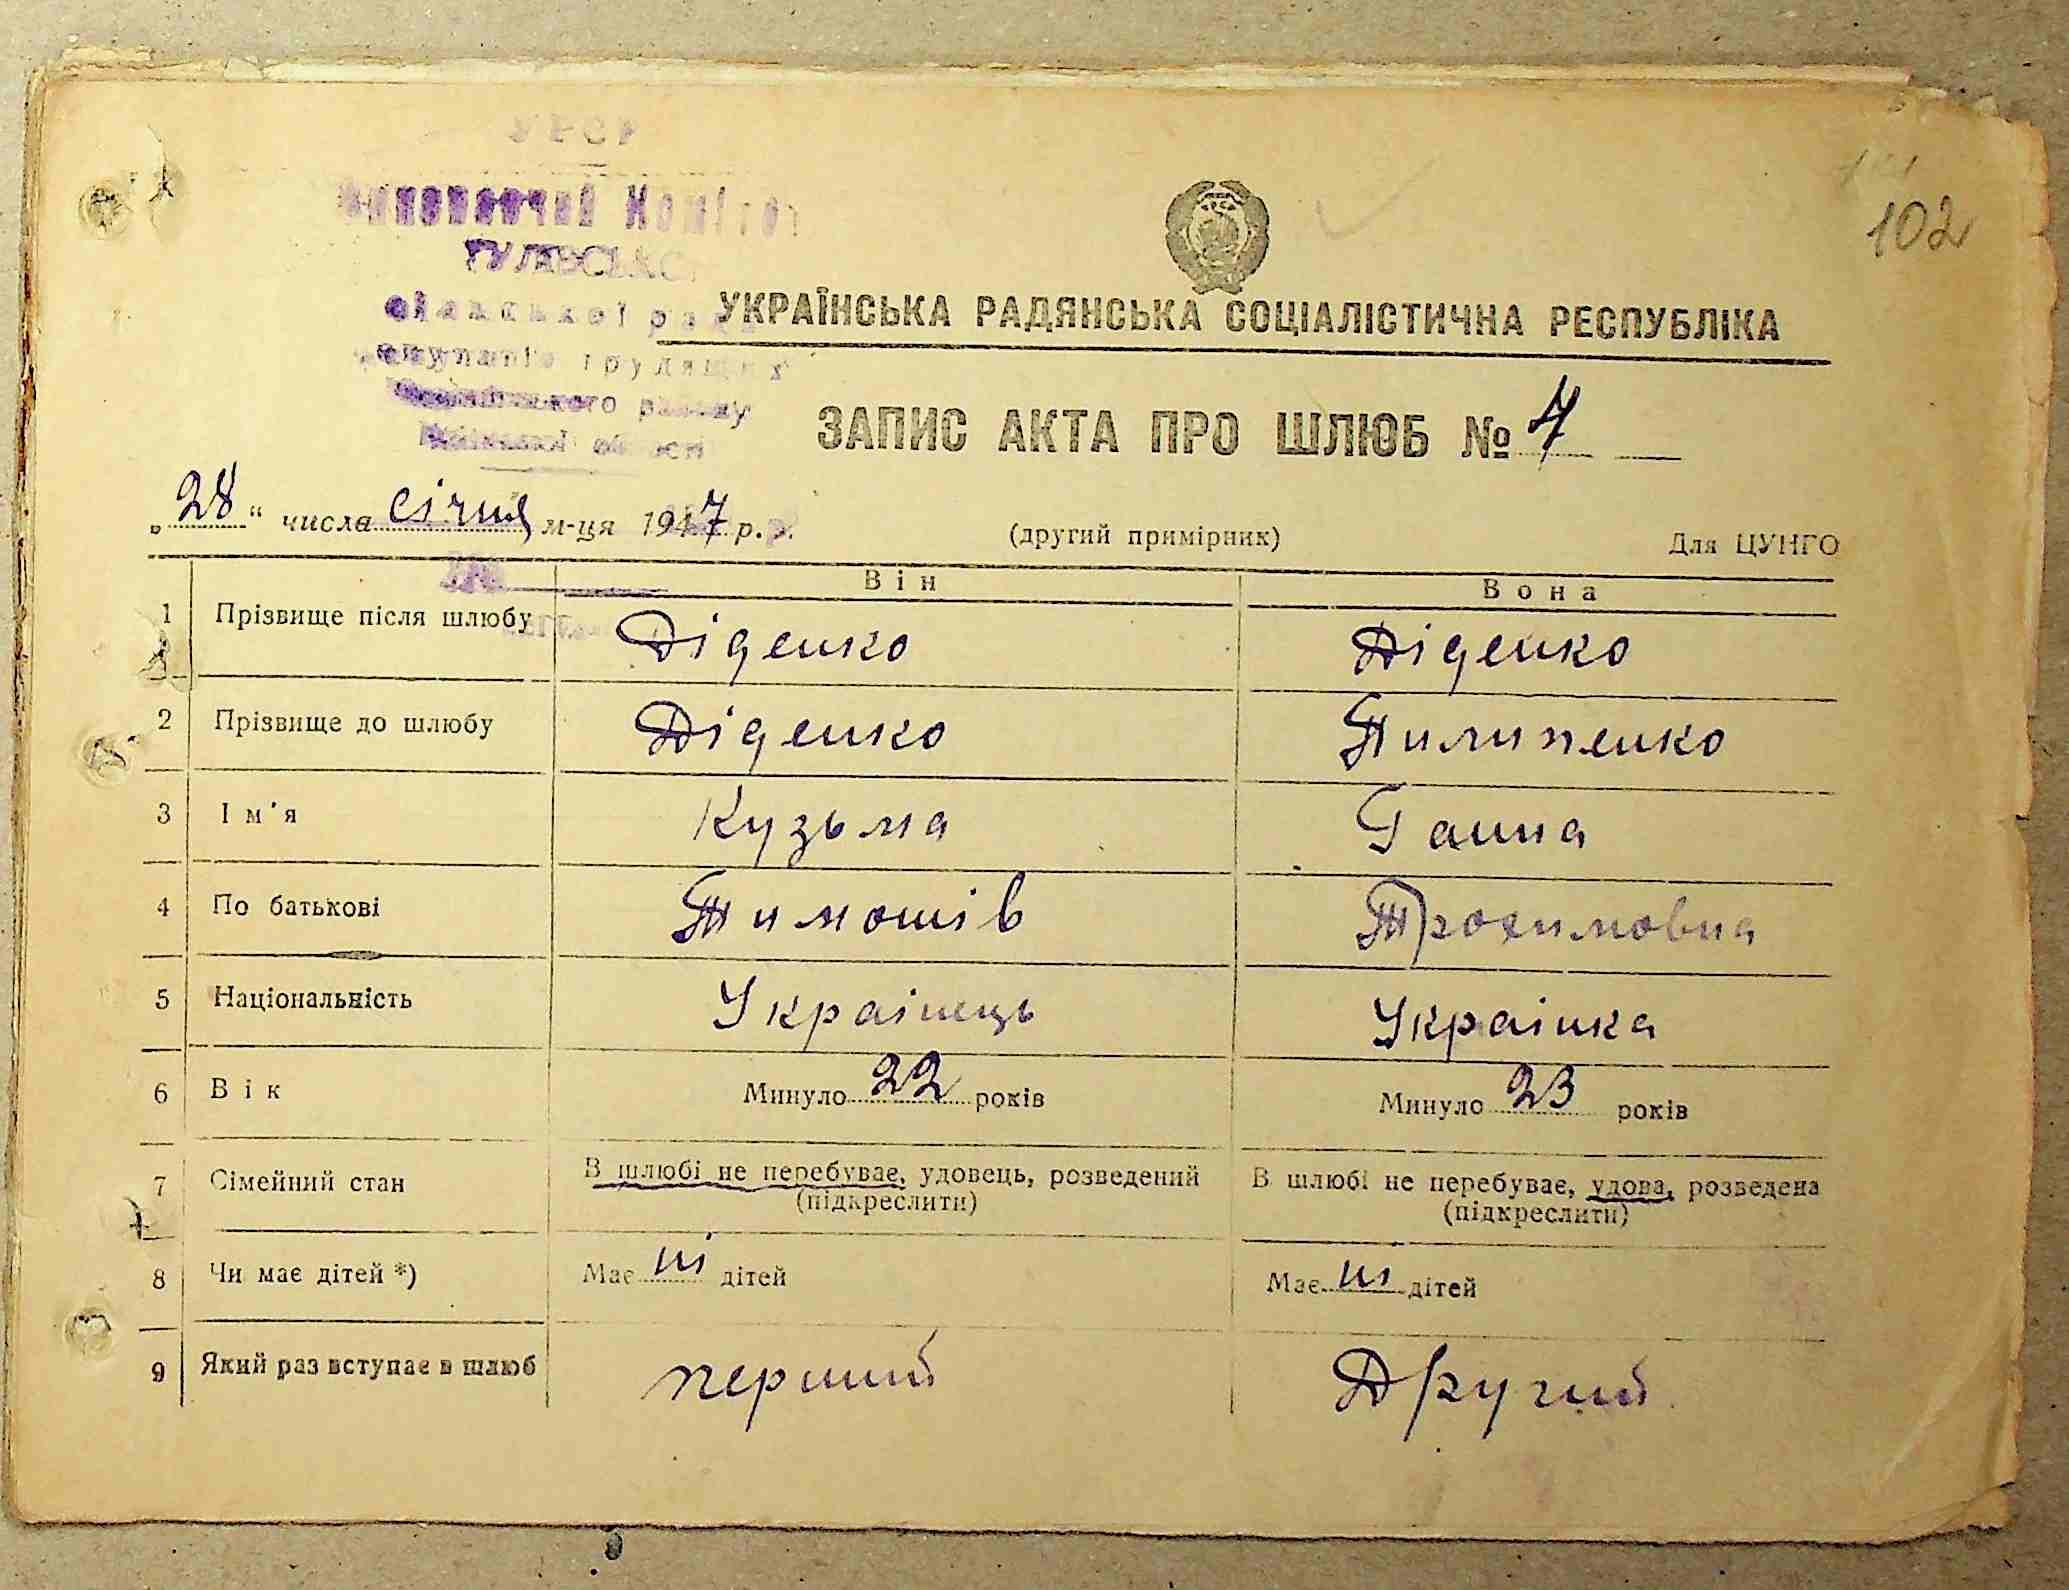 УРСР
Виконавчий Комітет
сільської ради
депутатів трудящих
району
області
102
УКРАЇНСЬКА РАДЯНСЬКА СОЦІАЛІСТИЧНА РЕСПУБЛІКА
ЗАПИС АКТА ПРО ШЛЮБ № 7
„28" числа січня м-ця 1947 р.
(другий примірник)
Для ЦУНГО
Він Вона
1 Прізвище після шлюбу Діденко Діденко
2 Прізвище до шлюбу Діденко Пилипенко
3 Ім'я Кузьма Ганна
4 По батькові Тимошів Трохимовна
5 Національність Украінець Украінка
6 Вік Минуло 22 років Минуло 23 років
7 Сімейний стан В шлюбі не перебуває, удовець, розведений В шлюбі не перебуває, удова, розведена
(підкреслити) (підкреслити)
8 Чи має дітей *) Має ні дітей Має ні дітей
9 Який раз вступає в шлюб перший Другий